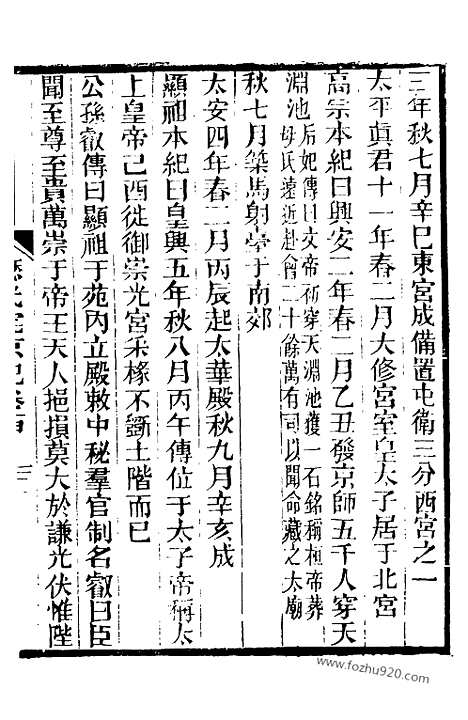 三年秋七月辛巳東宮成備置屯衛三分西宮之一
太平眞君十一年春二月大修宮室皇太子居于北宮
高宗本紀曰興安二年春二月乙丑發京師五千人穿天
淵池后妃傳曰文帝初穿天淵池獲一石銘稱桓帝葬
母氏遠近赴會二十餘萬有司以聞命藏之太廟
秋七月築馬射臺于南郊
太安四年春二月丙辰起太華殿秋九月辛亥成
顯祖本紀曰皇興五年秋八月丙午傳位于太子帝稱太
上皇帝己酉徙御崇光宮采椽不斵土階而已
公孫叡傳曰顯祖于苑內立殿敕中秘羣官制名叡曰臣
聞至尊至貴萬崇于帝王天人挹損莫大於謙光伏惟陛
歷代宅京記卷四
三
www.fozhu920.com